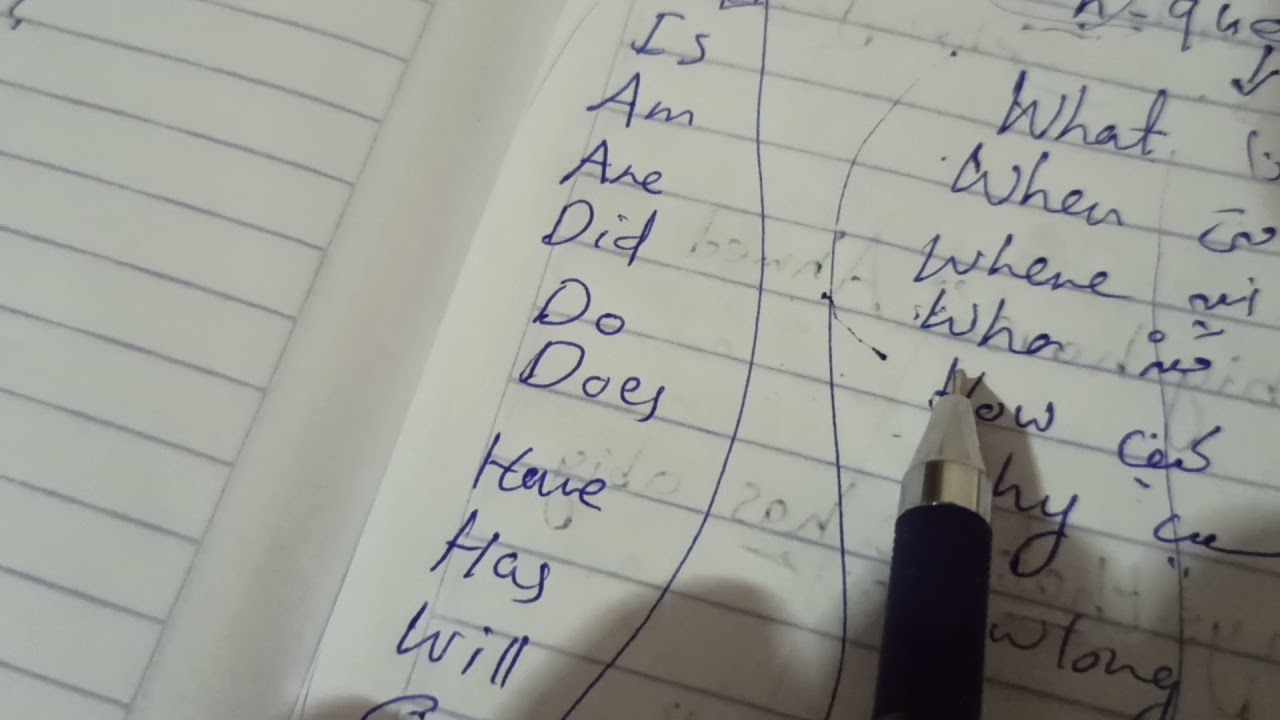 Is
Am
Are
Did
Do
Does
Have
Has
Will
What
When
Where
Who
How كيف
hy
w long